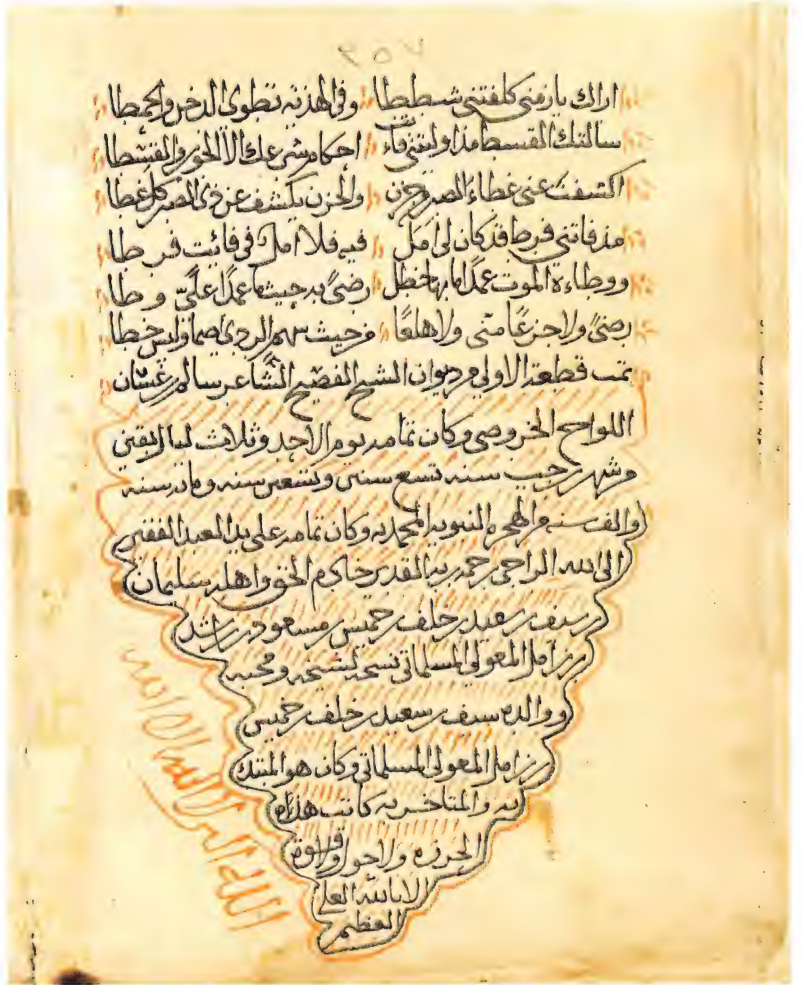 ٣٥٧
اراك يا زمني كلفتني شططا وفي الهذنه تطوى الدخن والحمطا
سالتك القسط مذ اوليتني احكام شرعك الا الجور والقسطا
اكشفت عني غطاء الصبر وحزن والحزن يكشف عن ذي الصبر كل غطا
مذ فاتني فرط قد كان لي امل فيه فلا امل في فائت فرطا
ووطاءة الموت عمدًا رضىً به حيثما عمدًا عليّ وطا
رضىً ولا جزعًا مني ولا هلعًا من حيث سهم الردى اصما وليس خطا
تمت قطعة الاولى من ديوان الشيخ الفصيح الشاعر سالم بن غسان
اللواح الخروصي وكان تمامه يوم الاحد وثلاث ليال بقين
من شهر رجب سنه تسع سنين وتسعين سنه ومائة سنه
والف سنه من الهجره النبويه المحمديه وكان تمامه على يد العبد الفقير
الى الله الراجي رحمة ربه القدير خادم الحق واهله سليمان
بن سيف بن سعيد بن خلف بن خميس بن مسعود بن راشد
بن زامل المعولي المسلماتي نسخه لشيخه ومحبه
ووالده سيف بن سعيد بن خلف بن خميس
بن زامل المعولي المسلماتي وكان هو المبتدا
به والمتاخر به كاتب هذه
الحرزه ولا حول ولا قوة
الا بالله العلي
العظيم
الله اكبر لا اله الا الله